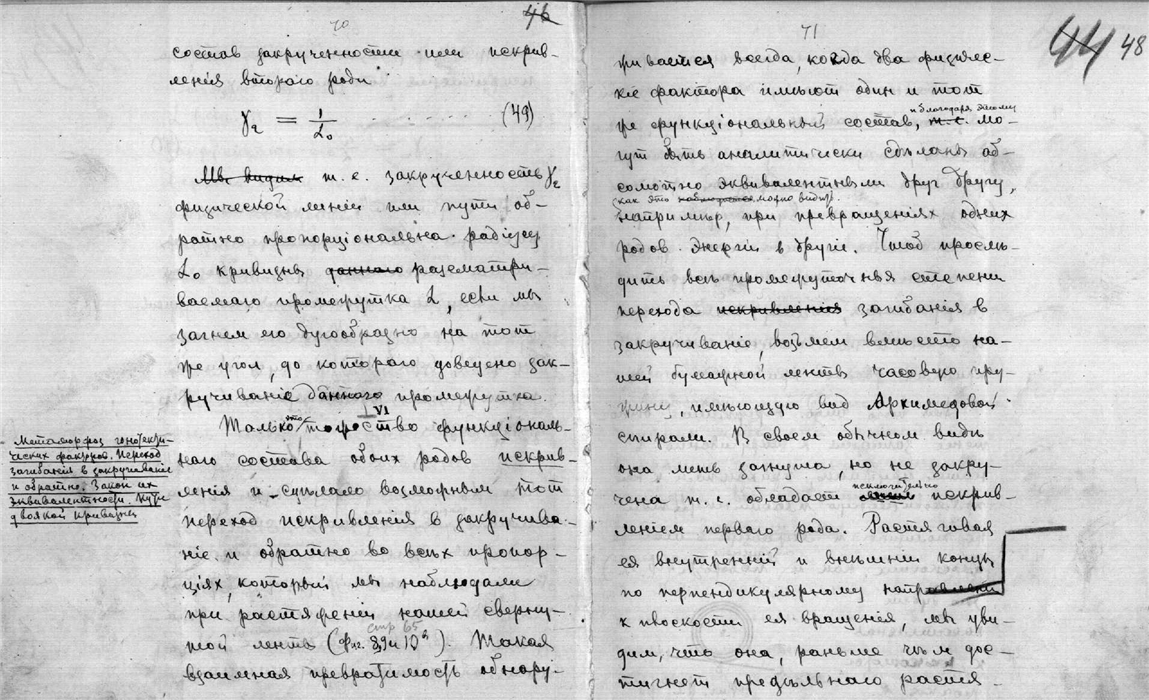 70
46
состав закрученности или искрив-
ленія втораго рода
γ₂ = 1/α₀ . . . . . . . . (49)
Мы видим т. е. закрученность γ₂
физической линіи или пути об-
ратно пропорціональна радіусу
α₀ кривизны даннаго разсматри-
ваемаго промежутка α, если мы
загнем его дугообразно на тот
же угол, до котораго доведено зак-
ручиваніе даннаго промежутка.
VI
Только это тожество функціональ-
наго состава обоих родов искрив-
ленія и сделало возможным тот
переход искривленія в закручива-
ніе и обратно во всех пропор-
ціях, который мы наблюдали
при растяженіи нашей сверну-
стр 65
той ленты (Фиг. 8, 9 и 10ª). Такая
взаимная превратимость обнару-
Метаморфоз генетжи-
ческих факторов. Переход
загибанія в закручиваніе
и обратно. Закон их
эквивалентности. Пути
двоякой кривизны
71
44 48
живается всегда, когда два физичес-
кіе фактора имеют один и тот
и благодаря этому
же функціональный состав, т. е. мо-
гут быть аналитически сделаны аб-
солютно эквивалентными друг другу,
как это наблюдается можно видеть
например, при превращеніях одних
родов энергіи в другіе. Чтоб просле-
дить все промежуточныя степени
перехода искривленія загибанія в
закручиваніе, возьмем вместо на-
шей бумажной ленты часовую пру-
жину, имеющую вид Архимедовой
спирали. В своем обычном виде
она лишь загнута, но не закру-
чена т. е. обладает лишь исключительно искрив-
леніем перваго рода. Растягивая
ея внутренній и внешній концы
по перпендикулярному направленію
к плоскости ея вращенія, мы уви-
дим, что она, раньше чем дос-
тигнет предельнаго растя-